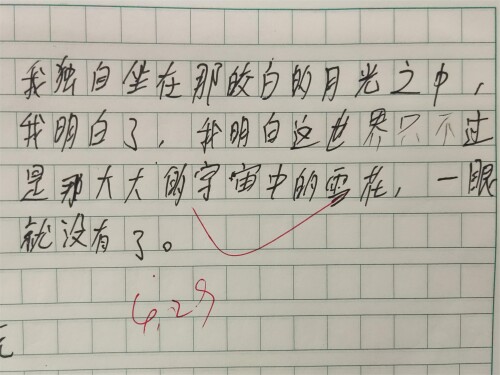 我独自坐在那皎白的月光之中，
我明白了，我明白这世界只不过
是那大大的宇宙中的雪花，一眼
就没有了。
6.29